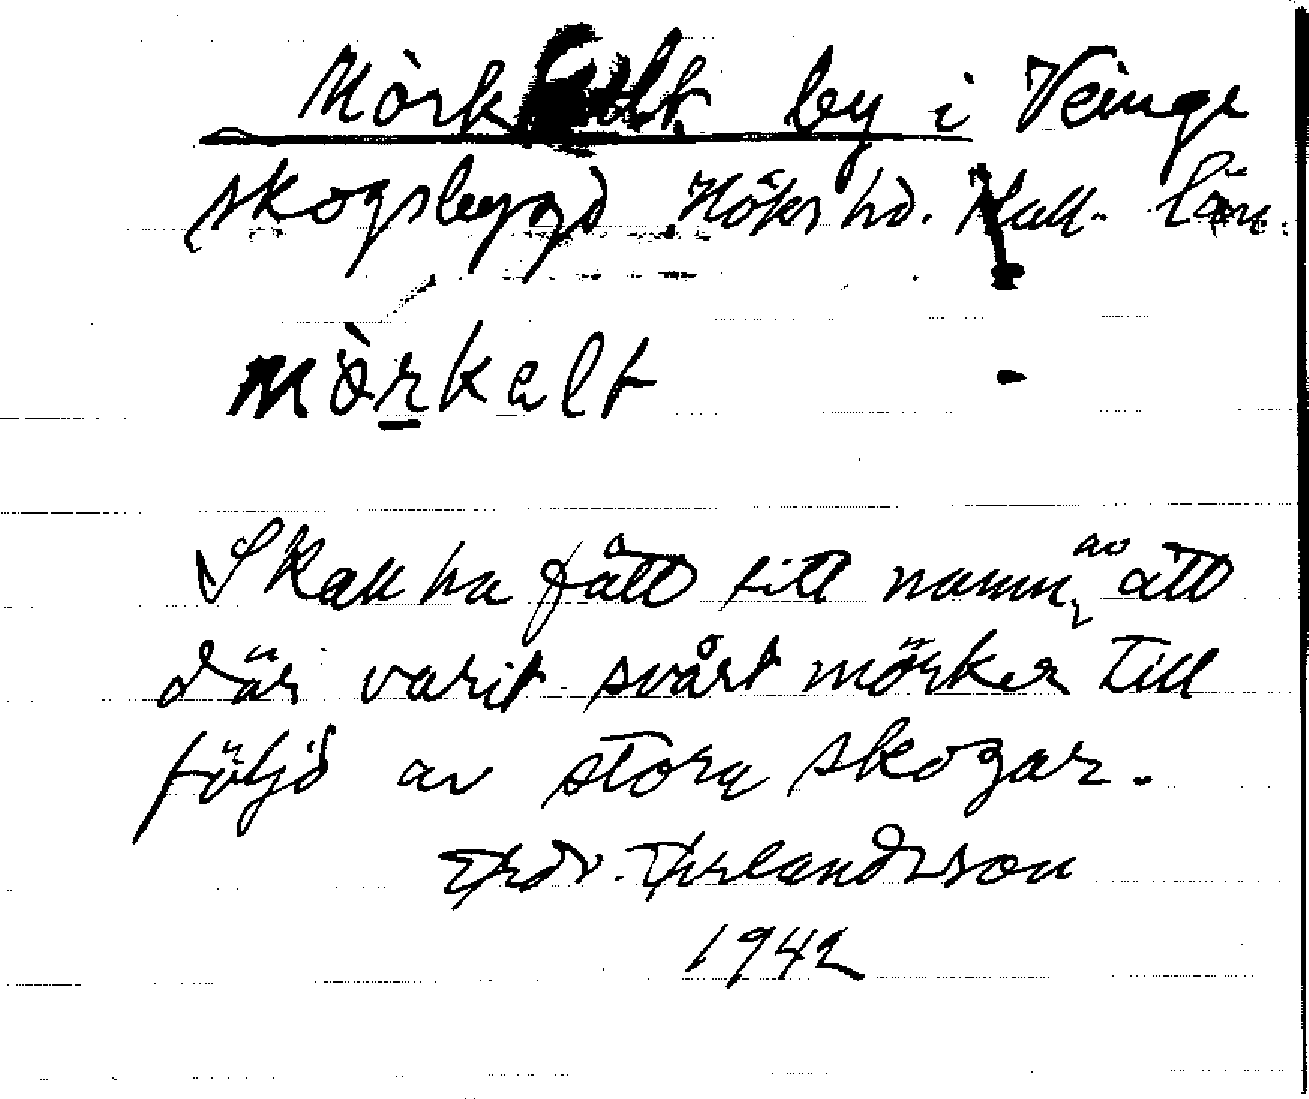 Mörkhult by i Veinge
skogsbygd Höks hd. Hall. län.
mòrkalt
Skall ha fått sitt namn, av att
där varit svårt mörker till
följd av stora skogar.
Erlandsson
1942